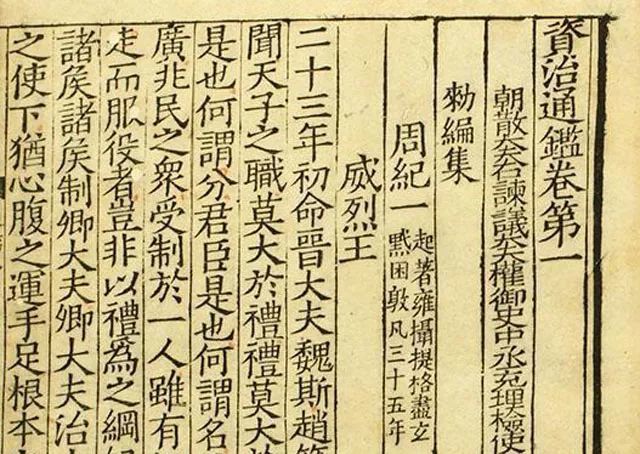 資治通鑑卷第一
朝散大夫右諫議大夫權御史中丞充理檢使
勑編集
周紀一
起著雍攝提格盡玄
黓困敦凡三十五年
威烈王
二十三年初命晉大夫魏斯趙
聞天子之職莫大於禮禮莫大
是也何謂分君臣是也何謂名
廣兆民之衆受制於一人雖有
走而服役者豈非以禮爲之綱
諸矦諸矦制卿大夫卿大夫治
之使下猶心腹之運手足根本